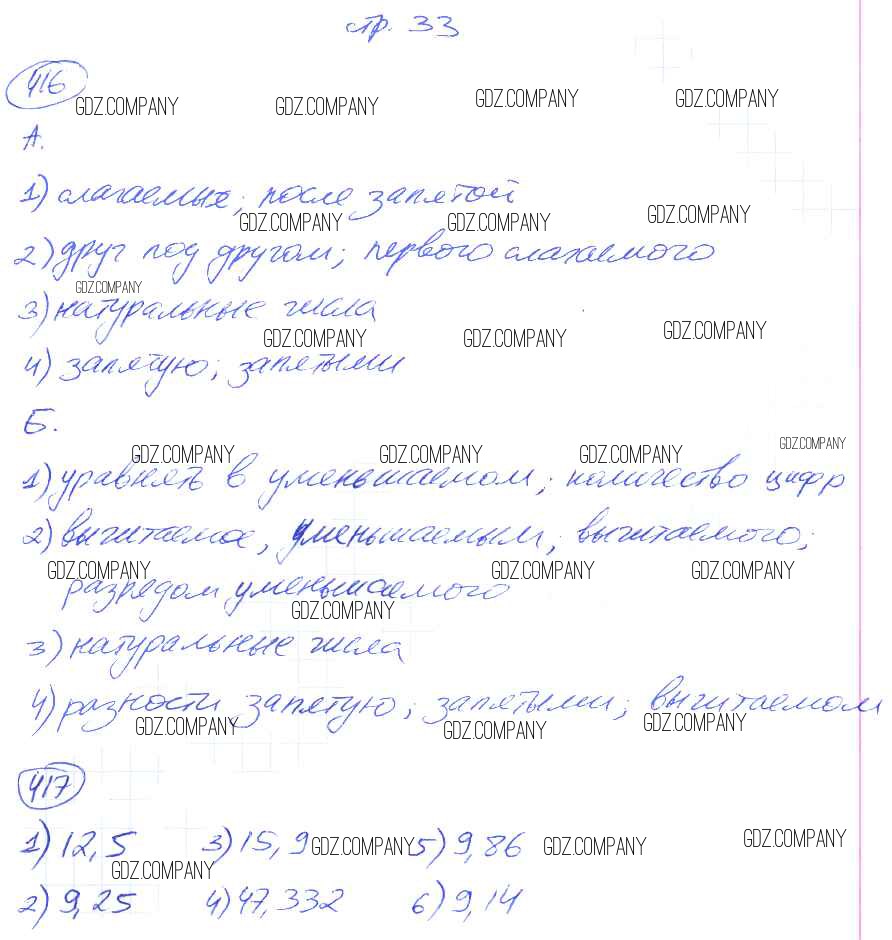 стр. 33
416
GDZ.COMPANY GDZ.COMPANY GDZ.COMPANY GDZ.COMPANY
А.
1) слагаемых; после запятой
GDZ.COMPANY GDZ.COMPANY GDZ.COMPANY
2) друг под другом; первого слагаемого
GDZ.COMPANY
3) натуральные числа
GDZ.COMPANY GDZ.COMPANY GDZ.COMPANY
4) запятую; запятыми
Б.
GDZ.COMPANY GDZ.COMPANY GDZ.COMPANY GDZ.COMPANY
1) уравнять в уменьшаемом; количество цифр
2) вычитаемое, уменьшаемым; вычитаемого;
GDZ.COMPANY GDZ.COMPANY GDZ.COMPANY
разрядом уменьшаемого
GDZ.COMPANY
3) натуральные числа
4) разности запятую; запятыми; вычитаемом
GDZ.COMPANY GDZ.COMPANY GDZ.COMPANY
417
1) 12,5 3) 15,9 5) 9,86
GDZ.COMPANY GDZ.COMPANY GDZ.COMPANY
GDZ.COMPANY
2) 9,25 4) 47,332 6) 9,14